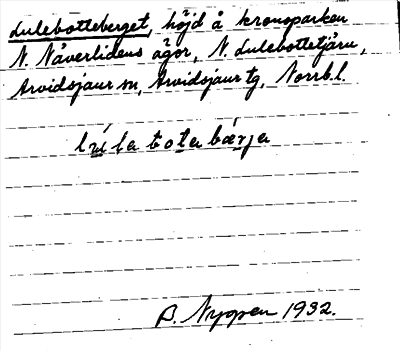 Lulebotteberget, höjd å kronoparken
N. Nåverlidens ägor, N. Lulebottetjärn,
Arvidsjaur sn, Arvidsjaur tg, Norrb. l.
lu̲í la bo ta bár̲ja
B. Nygren 1932.